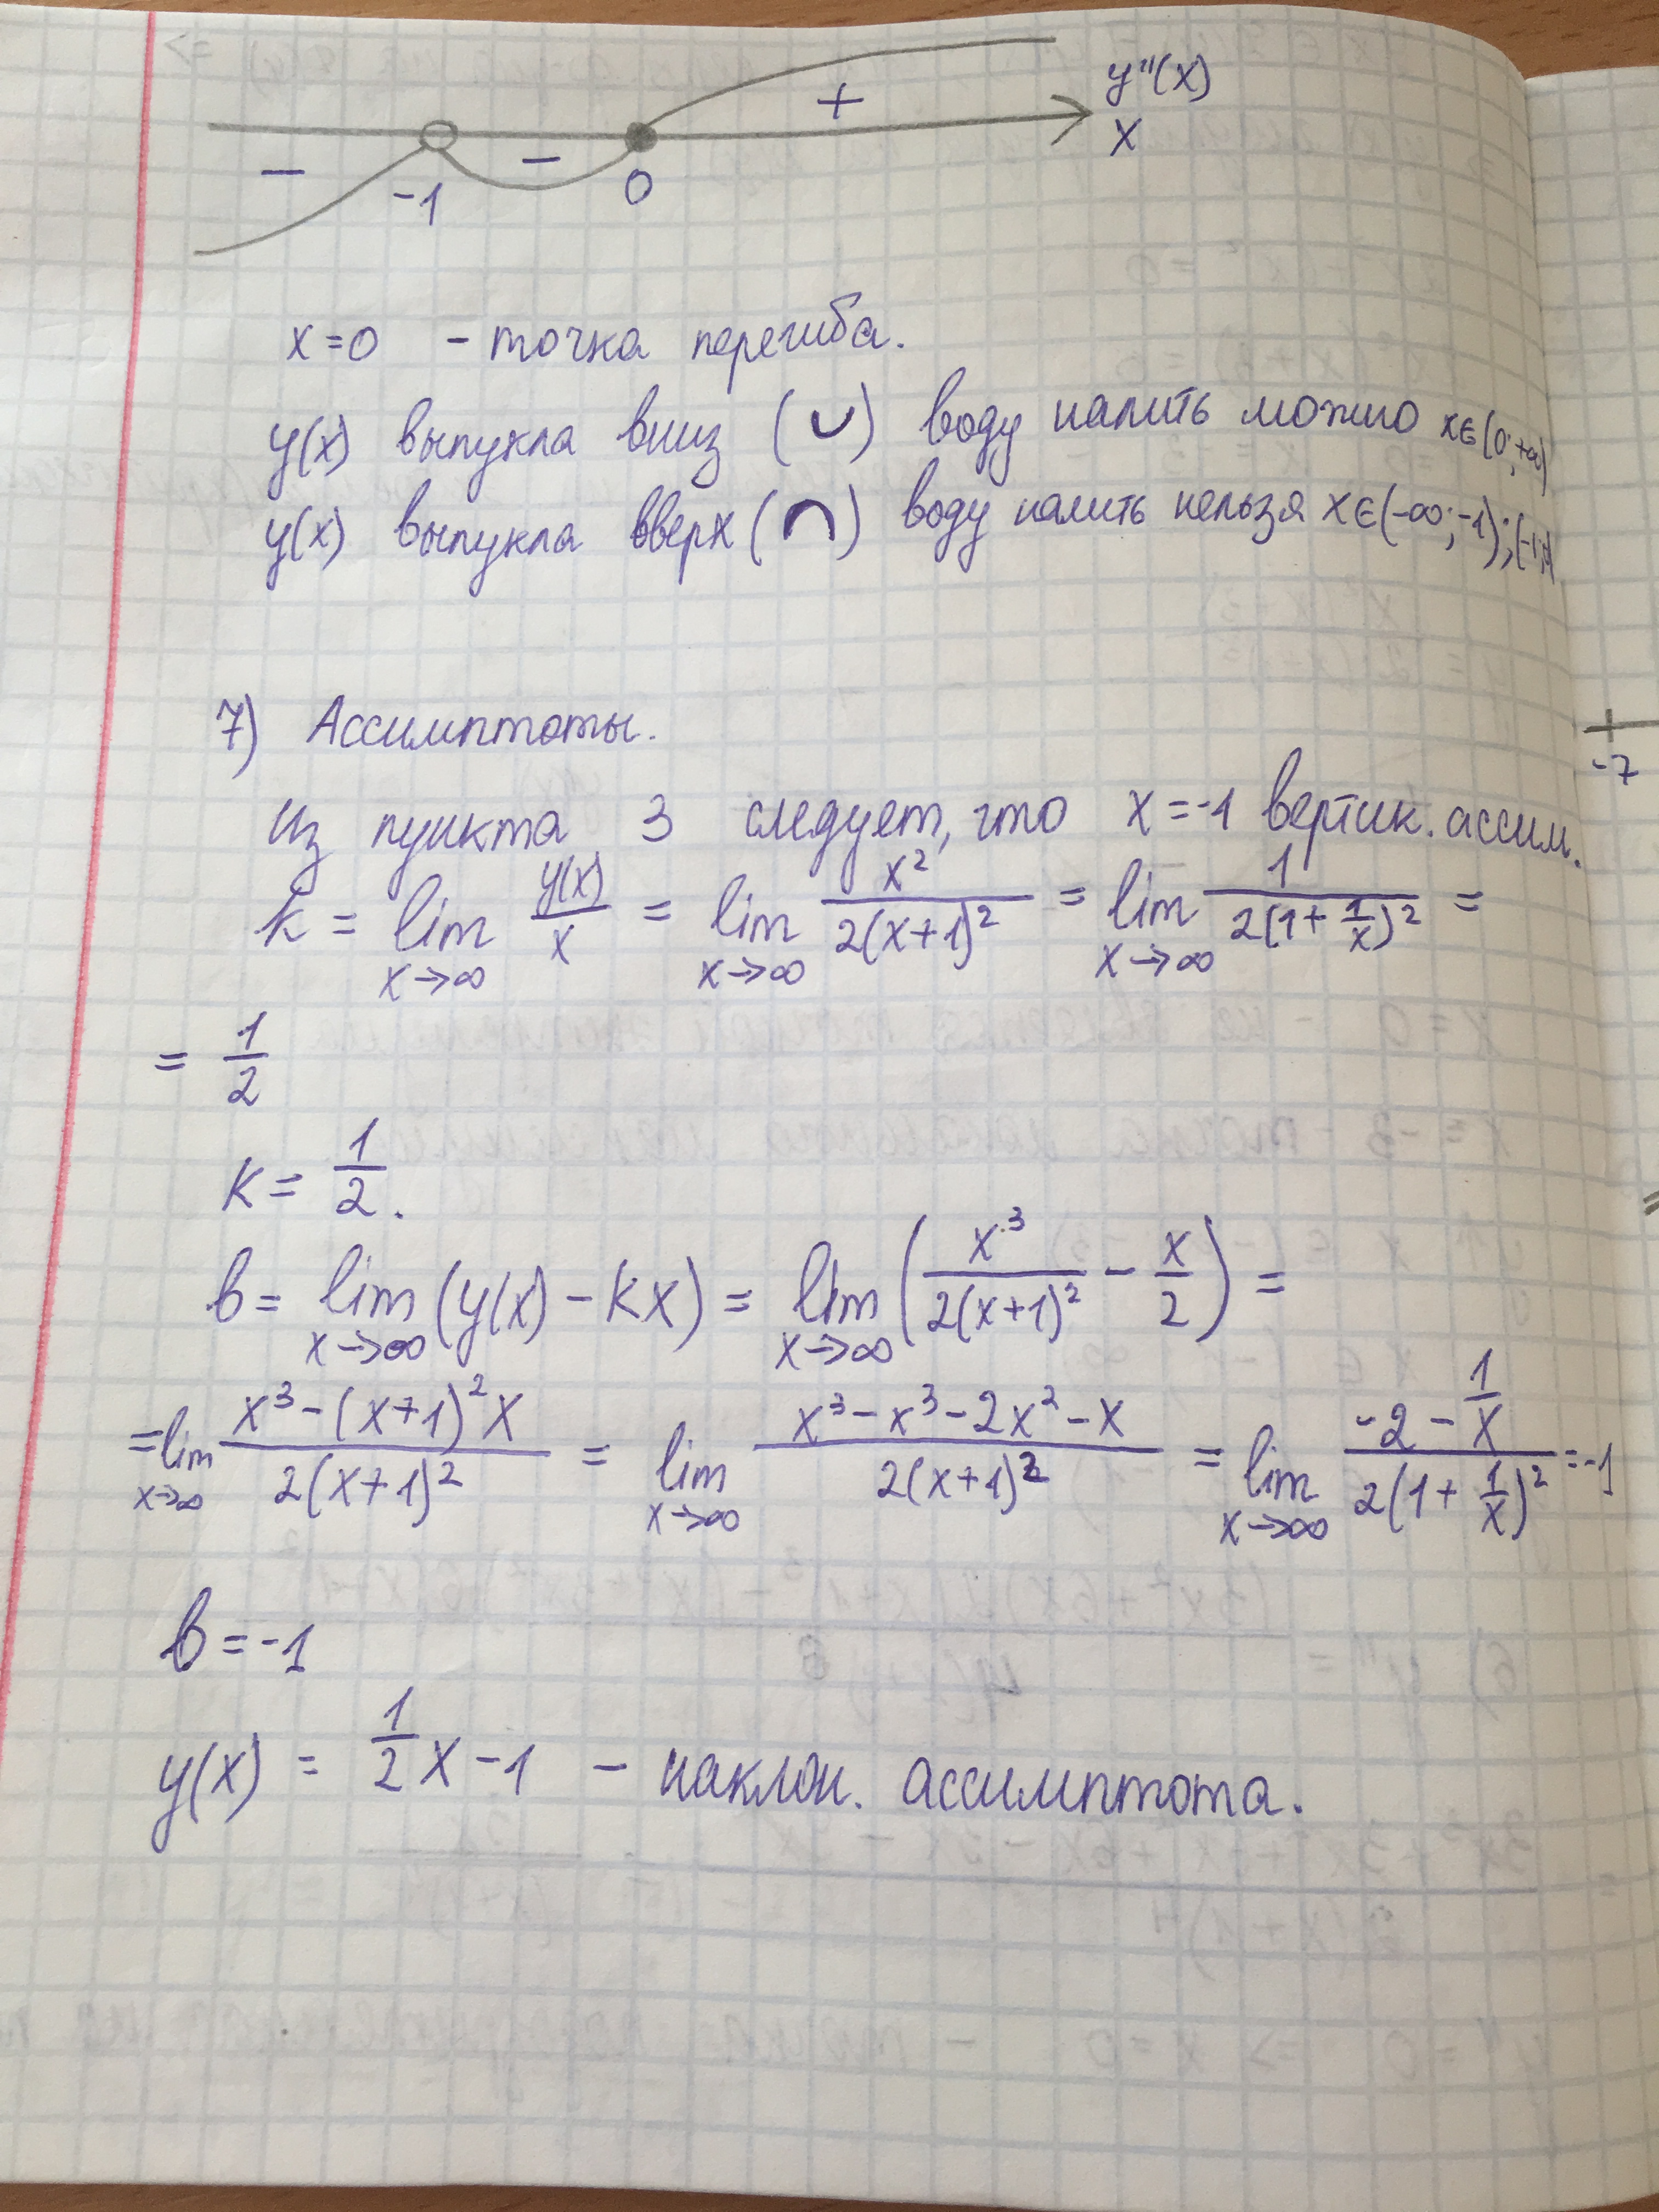 y''(x)
+
x
− −
-1 0
x=0 - точка перегиба.
y(x) выпукла вниз (∪) воду налить можно x∈(0;+∞)
y(x) выпукла вверх (∩) воду налить нельзя x∈(-∞;-1);
7) Ассимптоты.
Из пункта 3 следует, что x=-1 вертик. ассим.
k = lim_{x→∞} y(x)/x = lim_{x→∞} x²/(2(x+1)²) = lim_{x→∞} 1/(2(1+1/x)²) =
= 1/2
k = 1/2.
b = lim_{x→∞} (y(x) - kx) = lim_{x→∞} (x³/(2(x+1)²) - x/2) =
= lim_{x→∞} (x³-(x+1)²x)/(2(x+1)²) = lim_{x→∞} (x³-x³-2x²-x)/(2(x+1)²) = lim_{x→∞} (-2-1/x)/(2(1+1/x)²) = -1
b = -1
y(x) = 1/2 x - 1 - наклон. ассимптота.
-7